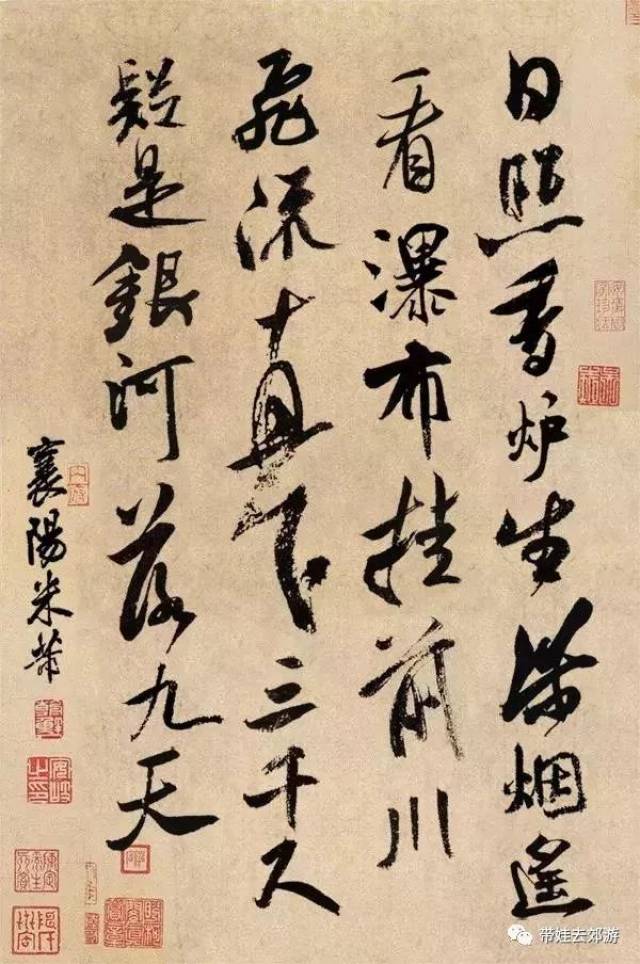 日照香炉生紫烟遙
看瀑布挂前川
飛流直下三千尺
疑是銀河落九天
襄陽米芾
带娃去郊游